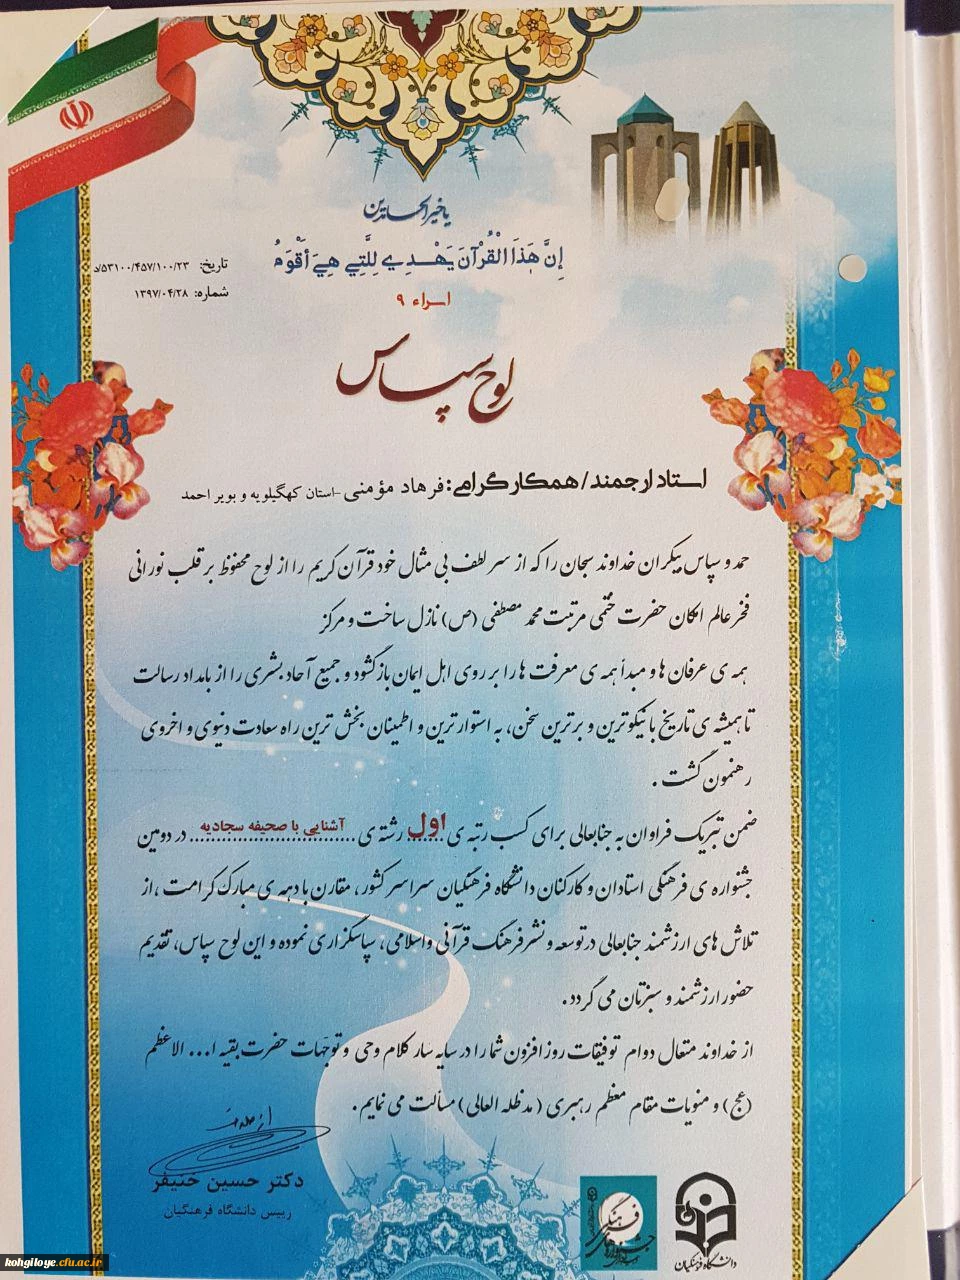 یا خیر الحامدین
إِنَّ هَذَا الْقُرْآنَ يَهْدِي لِلَّتِي هِيَ أَقْوَمُ
اسراء ۹
تاریخ: ۵۳۱۰۰/۴۵۷/۱۰۰/۲۳/د
شماره: ۱۳۹۷/۰۴/۲۸
لوح سپاس
استاد ارجمند/همکار گرامی: فرهاد مؤمنی -استان کهگیلویه و بویر احمد
حمد و سپاس بیکران خداوند سبحان را که از سر لطف بی مثال خود قرآن کریم را از لوح محفوظ بر قلب نورانی
فخر عالم امکان حضرت ختمی مرتبت محمد مصطفی (ص) نازل ساخت و مرکز
همه ی عرفان ها و مبدأ همه ی معرفت ها را بر روی اهل ایمان باز گشود و جمیع آحاد بشری را از بامداد رسالت
تا همیشه ی تاریخ با نیکوترین و برترین سخن، به استوارترین و اطمینان بخش ترین راه سعادت دنیوی و اخروی
رهنمون گشت.
ضمن تبریک فراوان به جنابعالی برای کسب رتبه ی اول رشته ی آشنایی با صحیفه سجادیه در دومین
جشنواره ی فرهنگی استادان و کارکنان دانشگاه فرهنگیان سراسر کشور، مقارن با دهه ی مبارک کرامت، از
تلاش های ارزشمند جنابعالی در توسعه و نشر فرهنگ قرآنی و اسلامی، سپاسگزاری نموده و این لوح سپاس، تقدیم
حضور ارزشمند و سبزتان می گردد.
از خداوند متعال دوام توفیقات روزافزون شما را در سایه سار کلام وحی و توجهات حضرت بقیه ا... الاعظم
(عج) و منویات مقام معظم رهبری (مدظله العالی) مسألت می نمایم.
دکتر حسین خنیفر
رییس دانشگاه فرهنگیان
دانشگاه فرهنگیان
kohgiloye.cfu.ac.ir